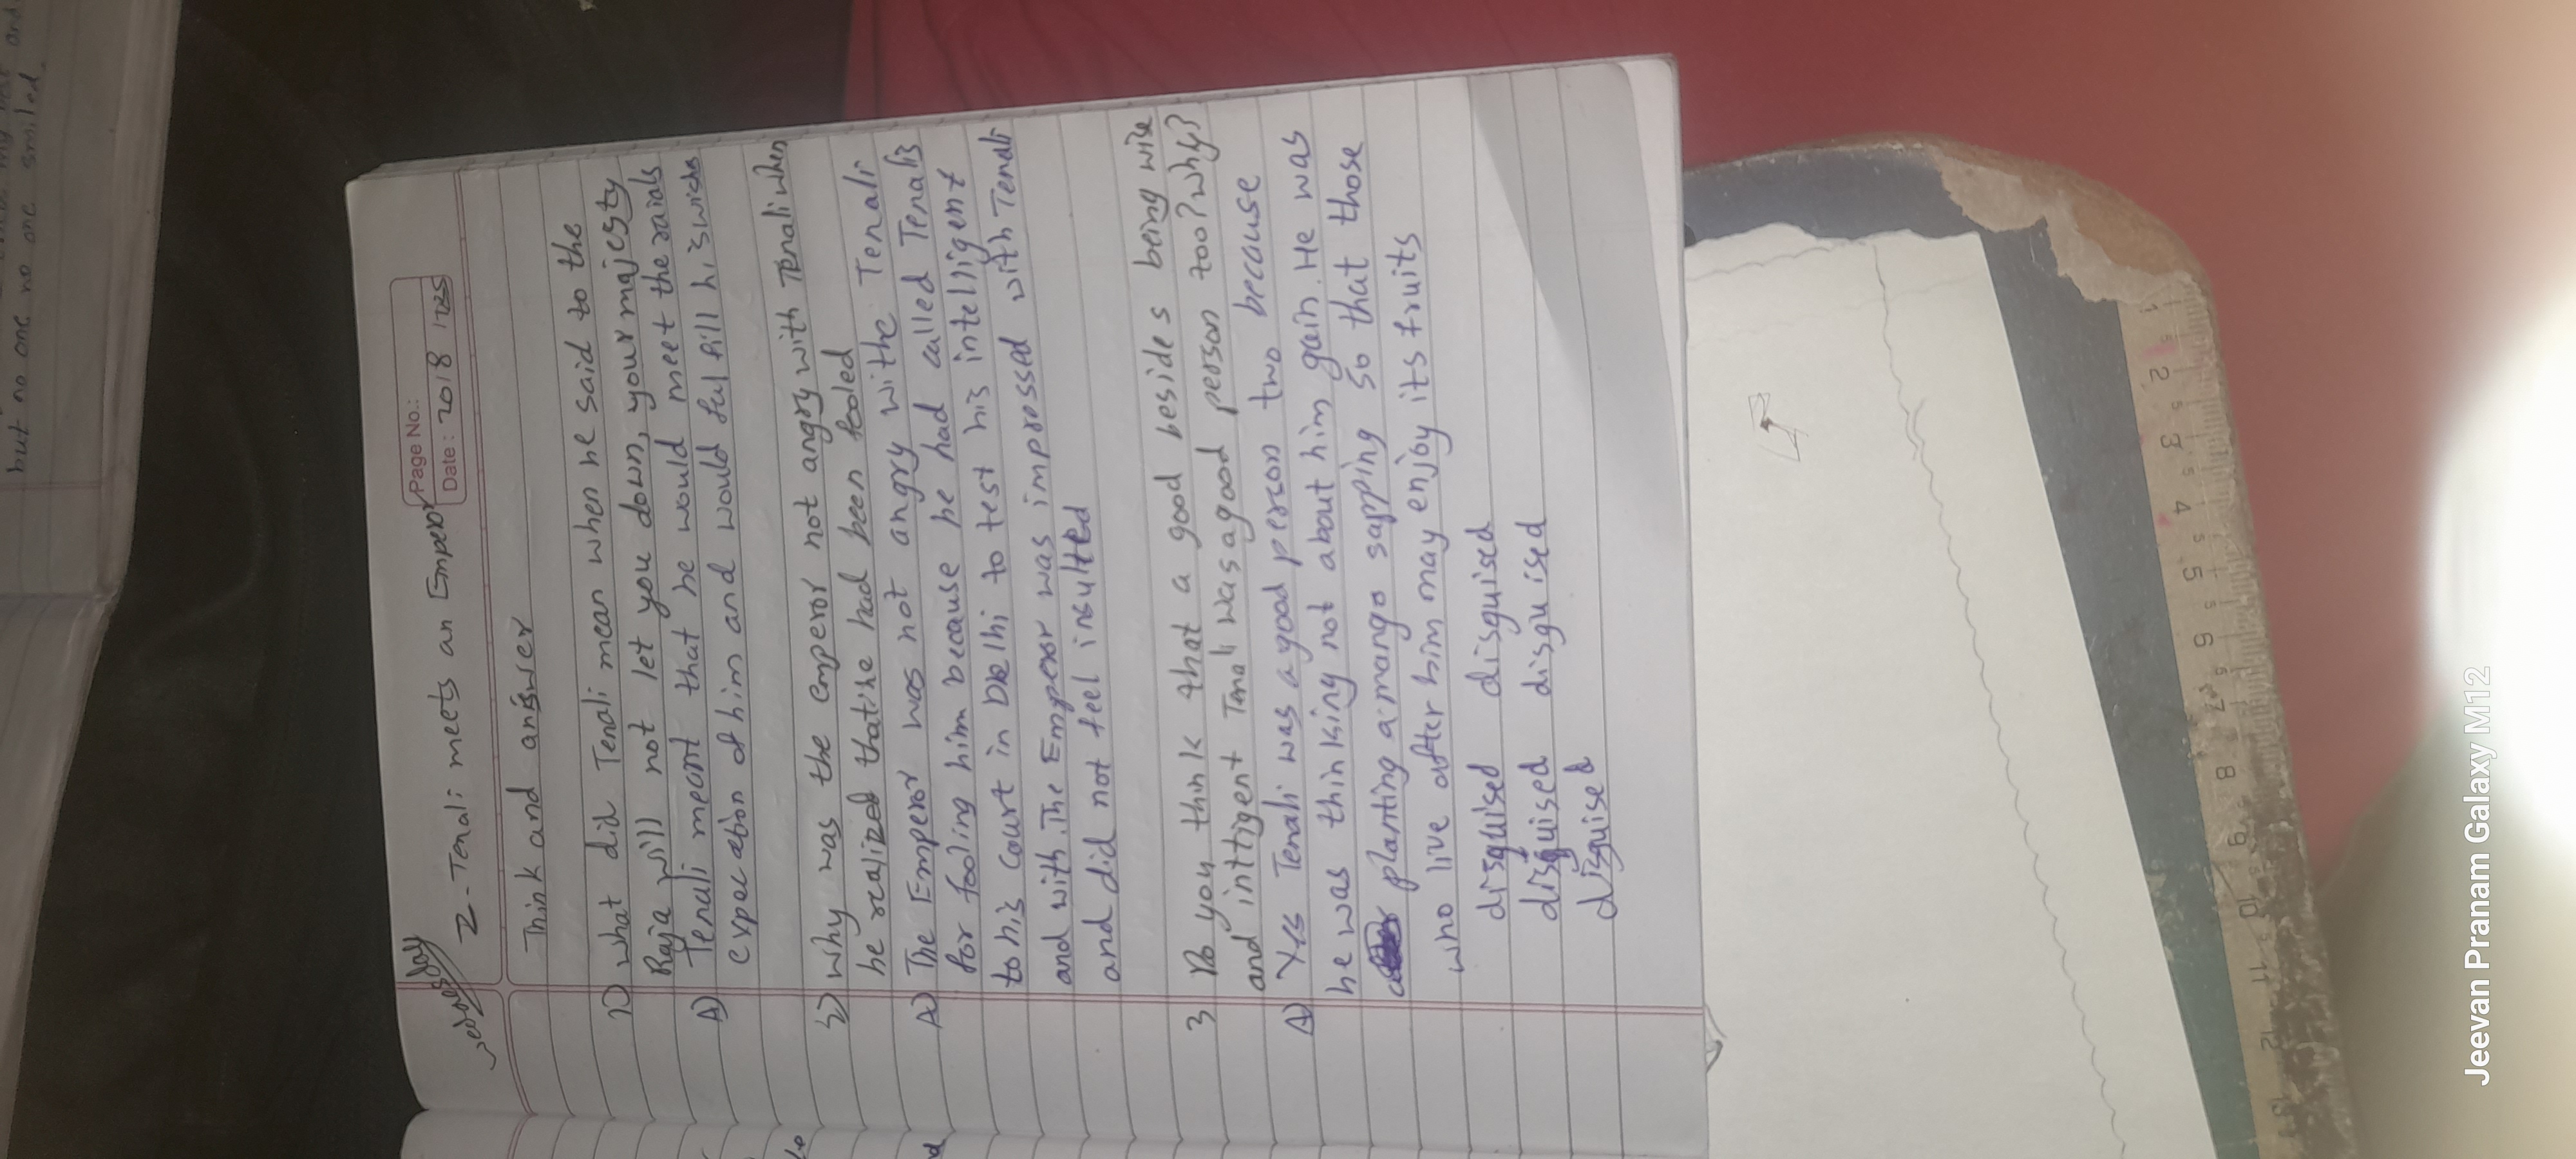 but no one no one smiled
wednesday
2-Tenali meets an Emperor
Page No.:
Date: 2018 1725
Think and answer
1) what did Tenali mean when he said to the
Raja will not let you down, your majesty
A) Tenali meant that he would meet the raials
expecation of him and would ful fill his wishes
2) Why was the emperor not angry with Tenali when
he realized that he had been fooled
A) The Emperor was not angry withe Tenali
for fooling him because he had called Tenalis
to his court in Delhi to test his intelligent
and with. The Emperor was impressed with Tenali
and did not feel insulted
3 Do you think that a good besides being wise
and inttigent Tenali was a good person too? why?
A) Yes Tenali was a good person two because
he was thinking not about him gain. He was
planting a mango sapping so that those
who live after him may enjoy its fruits
disguised disguised
disguised disguised
disguised
1 2 3 4 5 6 7 8 9 10 11 12
Jeevan Pranam Galaxy M12